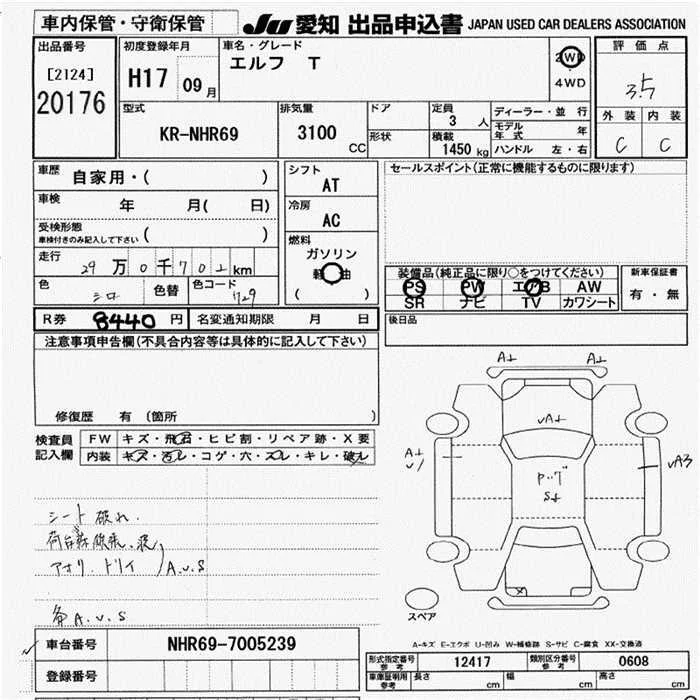 車内保管・守衛保管 JU 愛知 出品申込書 JAPAN USED CAR DEALERS ASSOCIATION
出品番号
[2124]
20176
初度登録年月
H17 09月
車名・グレード
エルフ T
2WD
・
4WD
評価点
3.5
外装 内装
C C
型式
KR-NHR69
排気量
3100 CC
ドア
形状
定員
3 人
積載
1450 kg
ディーラー・並 行
モデル年式 年
ハンドル 左・右
車歴 自家用・( )
車検 年 月( 日)
受検形態
車検付きのみ記入して下さい ( )
走行 29万0千702km
色 シロ 色替 色コード 729
シフト
AT
冷房
AC
燃料
ガソリン
軽 油
( )
セールスポイント(正常に機能するものに限ります)
装備品(純正品に限り○をつけてください)
PS PW エアB AW
SR ナビ TV カワシート
新車保証書
有・無
後日品
R券 8440 円 名変通知期限 月 日
注意事項申告欄(不具合内容等は具体的に記入して下さい)
修復歴 有 (箇所 )
検査員記入欄
FW キズ・飛石・ヒビ割・リペア跡・X要
内装 キズ・汚レ・コゲ・穴・スレ・キレ・破レ
シート破れ.
アオリ.トリイ A.U.S
A.U.S
A⊥ A⊥
UA⊥
A⊥
UA3
S⊥
スペア
A-キズ E-エクボ U-凹み W-補修跡 S-サビ C-腐食 XX-交換済
車台番号 NHR69-7005239
登録番号
形式指定番号参考 12417 類別区分番号参考 0608
車庫証明用参考 長さ cm 幅 cm 高さ cm